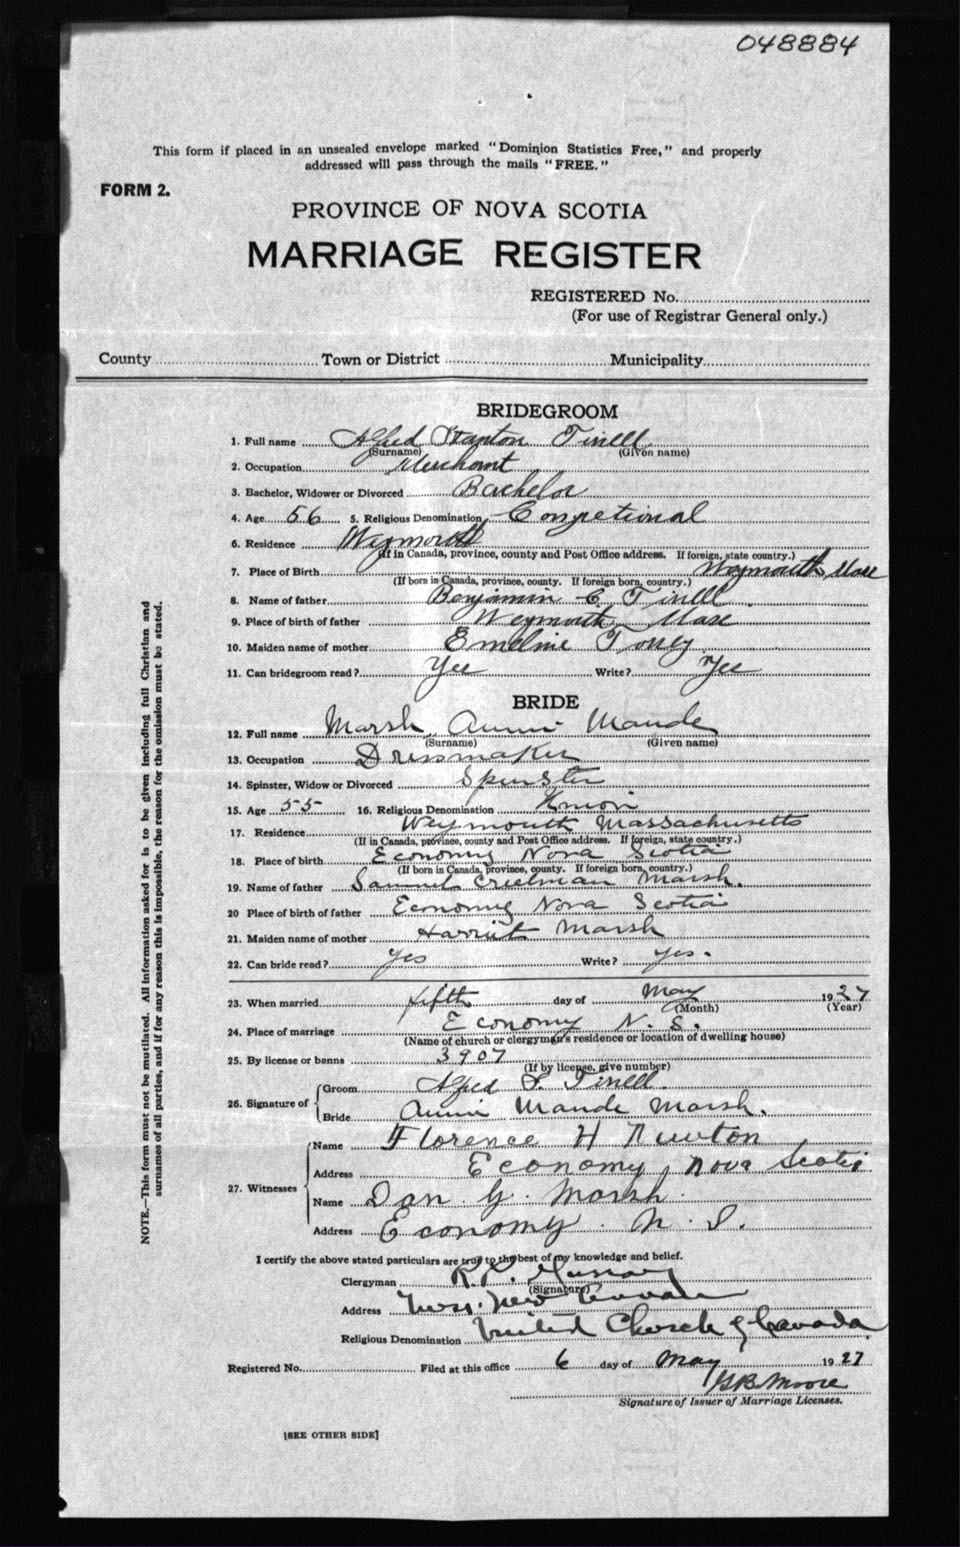 048884
This form if placed in an unsealed envelope marked "Dominion Statistics Free," and properly
addressed will pass through the mails "FREE."
FORM 2.
PROVINCE OF NOVA SCOTIA
MARRIAGE REGISTER
REGISTERED No.
(For use of Registrar General only.)
County Town or District Municipality
BRIDEGROOM
1. Full name Alfred Stanton Tirrell
(Surname) (Given name)
2. Occupation Merchant
3. Bachelor, Widower or Divorced Bachelor
4. Age 56 5. Religious Denomination Congretional
6. Residence Weymouth
(If in Canada, province, county and Post Office address. If foreign, state country.)
7. Place of Birth Weymouth Mass
(If born in Canada, province, county. If foreign born, country.)
8. Name of father Benjamin C Tirrell
9. Place of birth of father Weymouth Mass
10. Maiden name of mother Emeline
11. Can bridegroom read? Yes Write? Yes
BRIDE
12. Full name Marsh Annie Maude
(Surname) (Given name)
13. Occupation Dressmaker
14. Spinster, Widow or Divorced Spinster
15. Age 55 16. Religious Denomination Union
17. Residence Weymouth Massachusetts
(If in Canada, province, county and Post Office address. If foreign, state country.)
18. Place of birth Economy Nova Scotia
(If born in Canada, province, county. If foreign born, country.)
19. Name of father Samuel Creelman Marsh.
20 Place of birth of father Economy Nova Scotia
21. Maiden name of mother Harriet Marsh
22. Can bride read? yes Write? yes.
23. When married fifth day of May 1927
(Month) (Year)
24. Place of marriage Economy N. S.
(Name of church or clergyman's residence or location of dwelling house)
25. By license or banns 3907
(If by license, give number)
26. Signature of Groom Alfred S. Tirrell.
Bride Annie Maude Marsh.
27. Witnesses Name Florence H Newton
Address Economy, Nova Scotia
Name Dan G. Marsh.
Address Economy. N. S.
I certify the above stated particulars are true to the best of my knowledge and belief.
Clergyman R. K. Murray
(Signature)
Address
Religious Denomination United Church of Canada.
Registered No. Filed at this office 6 day of May 1927
Moore
Signature of Issuer of Marriage Licenses.
[SEE OTHER SIDE]
NOTE.—This form must not be mutilated. All information asked for is to be given including full Christian and
surnames of all parties, and if for any reason this is impossible, the reason for the omission must be stated.